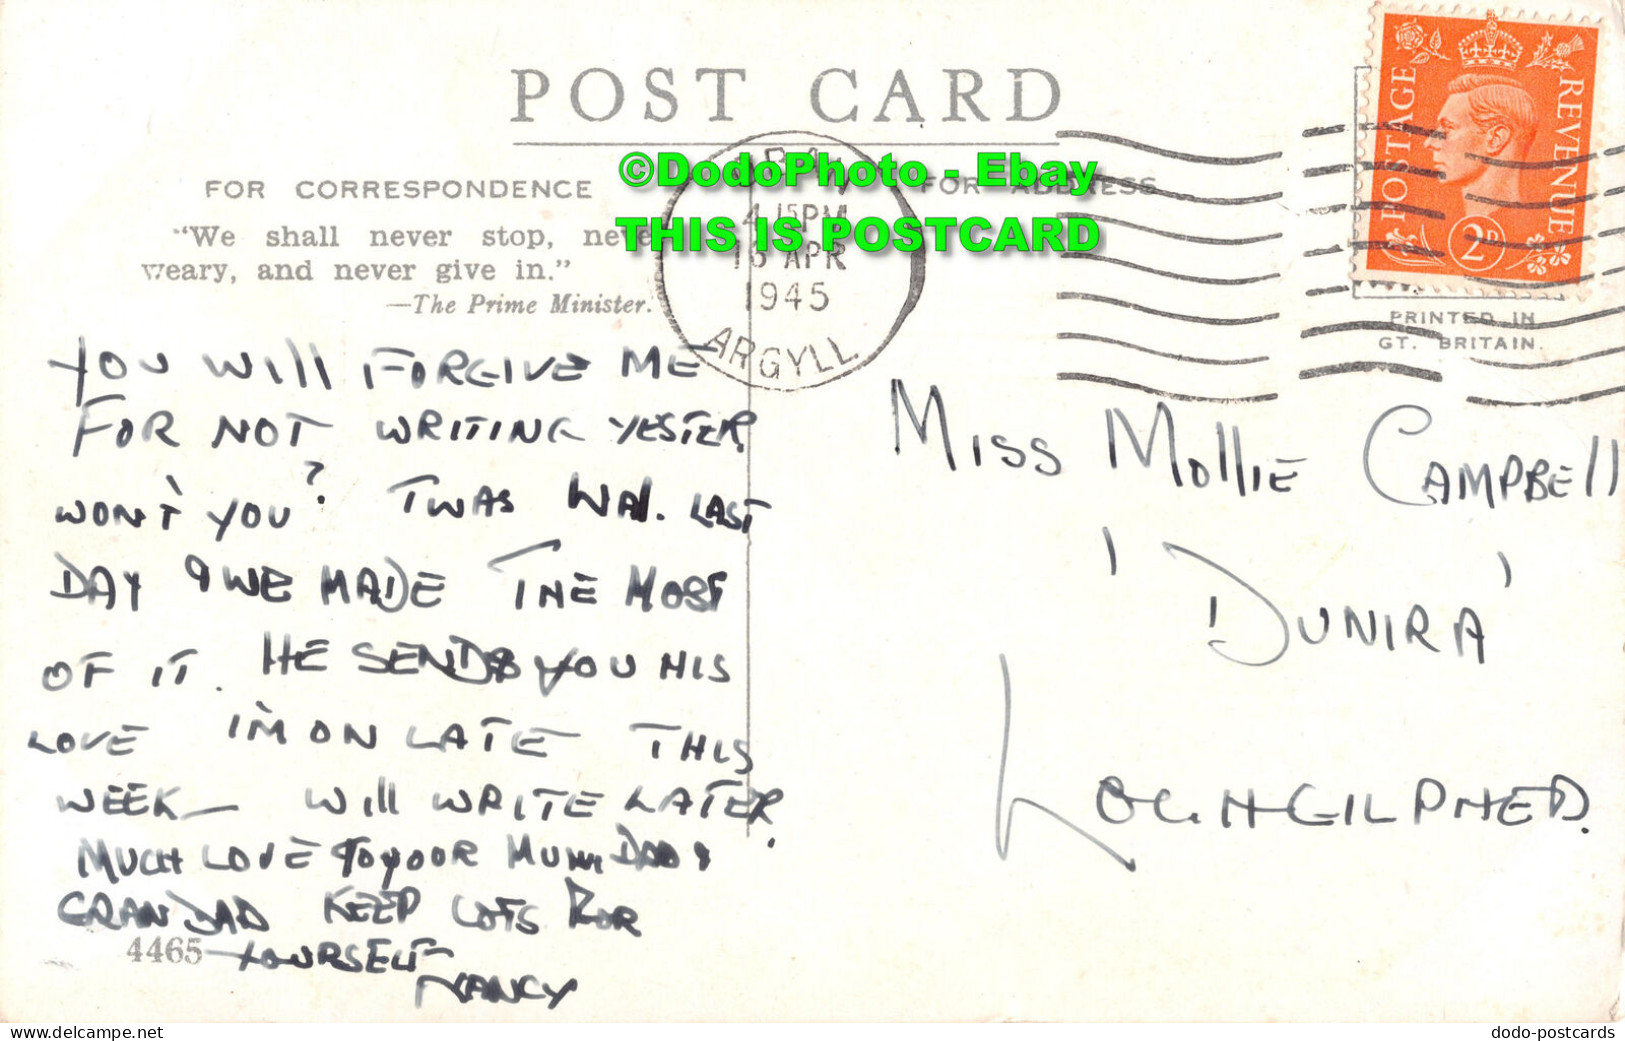 POST CARD
FOR CORRESPONDENCE
FOR ADDRESS
"We shall never stop, never
weary, and never give in."
—The Prime Minister.
©DodoPhoto - Ebay
THIS IS POSTCARD
4 15 PM
16 APR
1945
ARGYLL
POSTAGE
REVENUE
2D
PRINTED IN
GT. BRITAIN.
YOU WILL FORGIVE ME
FOR NOT WRITING YESTER
WON'T YOU? TWAS LAST
DAY & WE MADE THE MOST
OF IT. HE SENDS YOU HIS
LOVE I'M ON LATE THIS
WEEK — WILL WRITE LATER.
MUCH LOVE TO YOUR MUM DAD &
GRANDAD KEEP LOTS FOR
YOURSELF
NANCY
4465
MISS MOLLIE CAMPBELL
'DUNIRA'
LOCHGILPHED.
dodo-postcards
www.delcampe.net